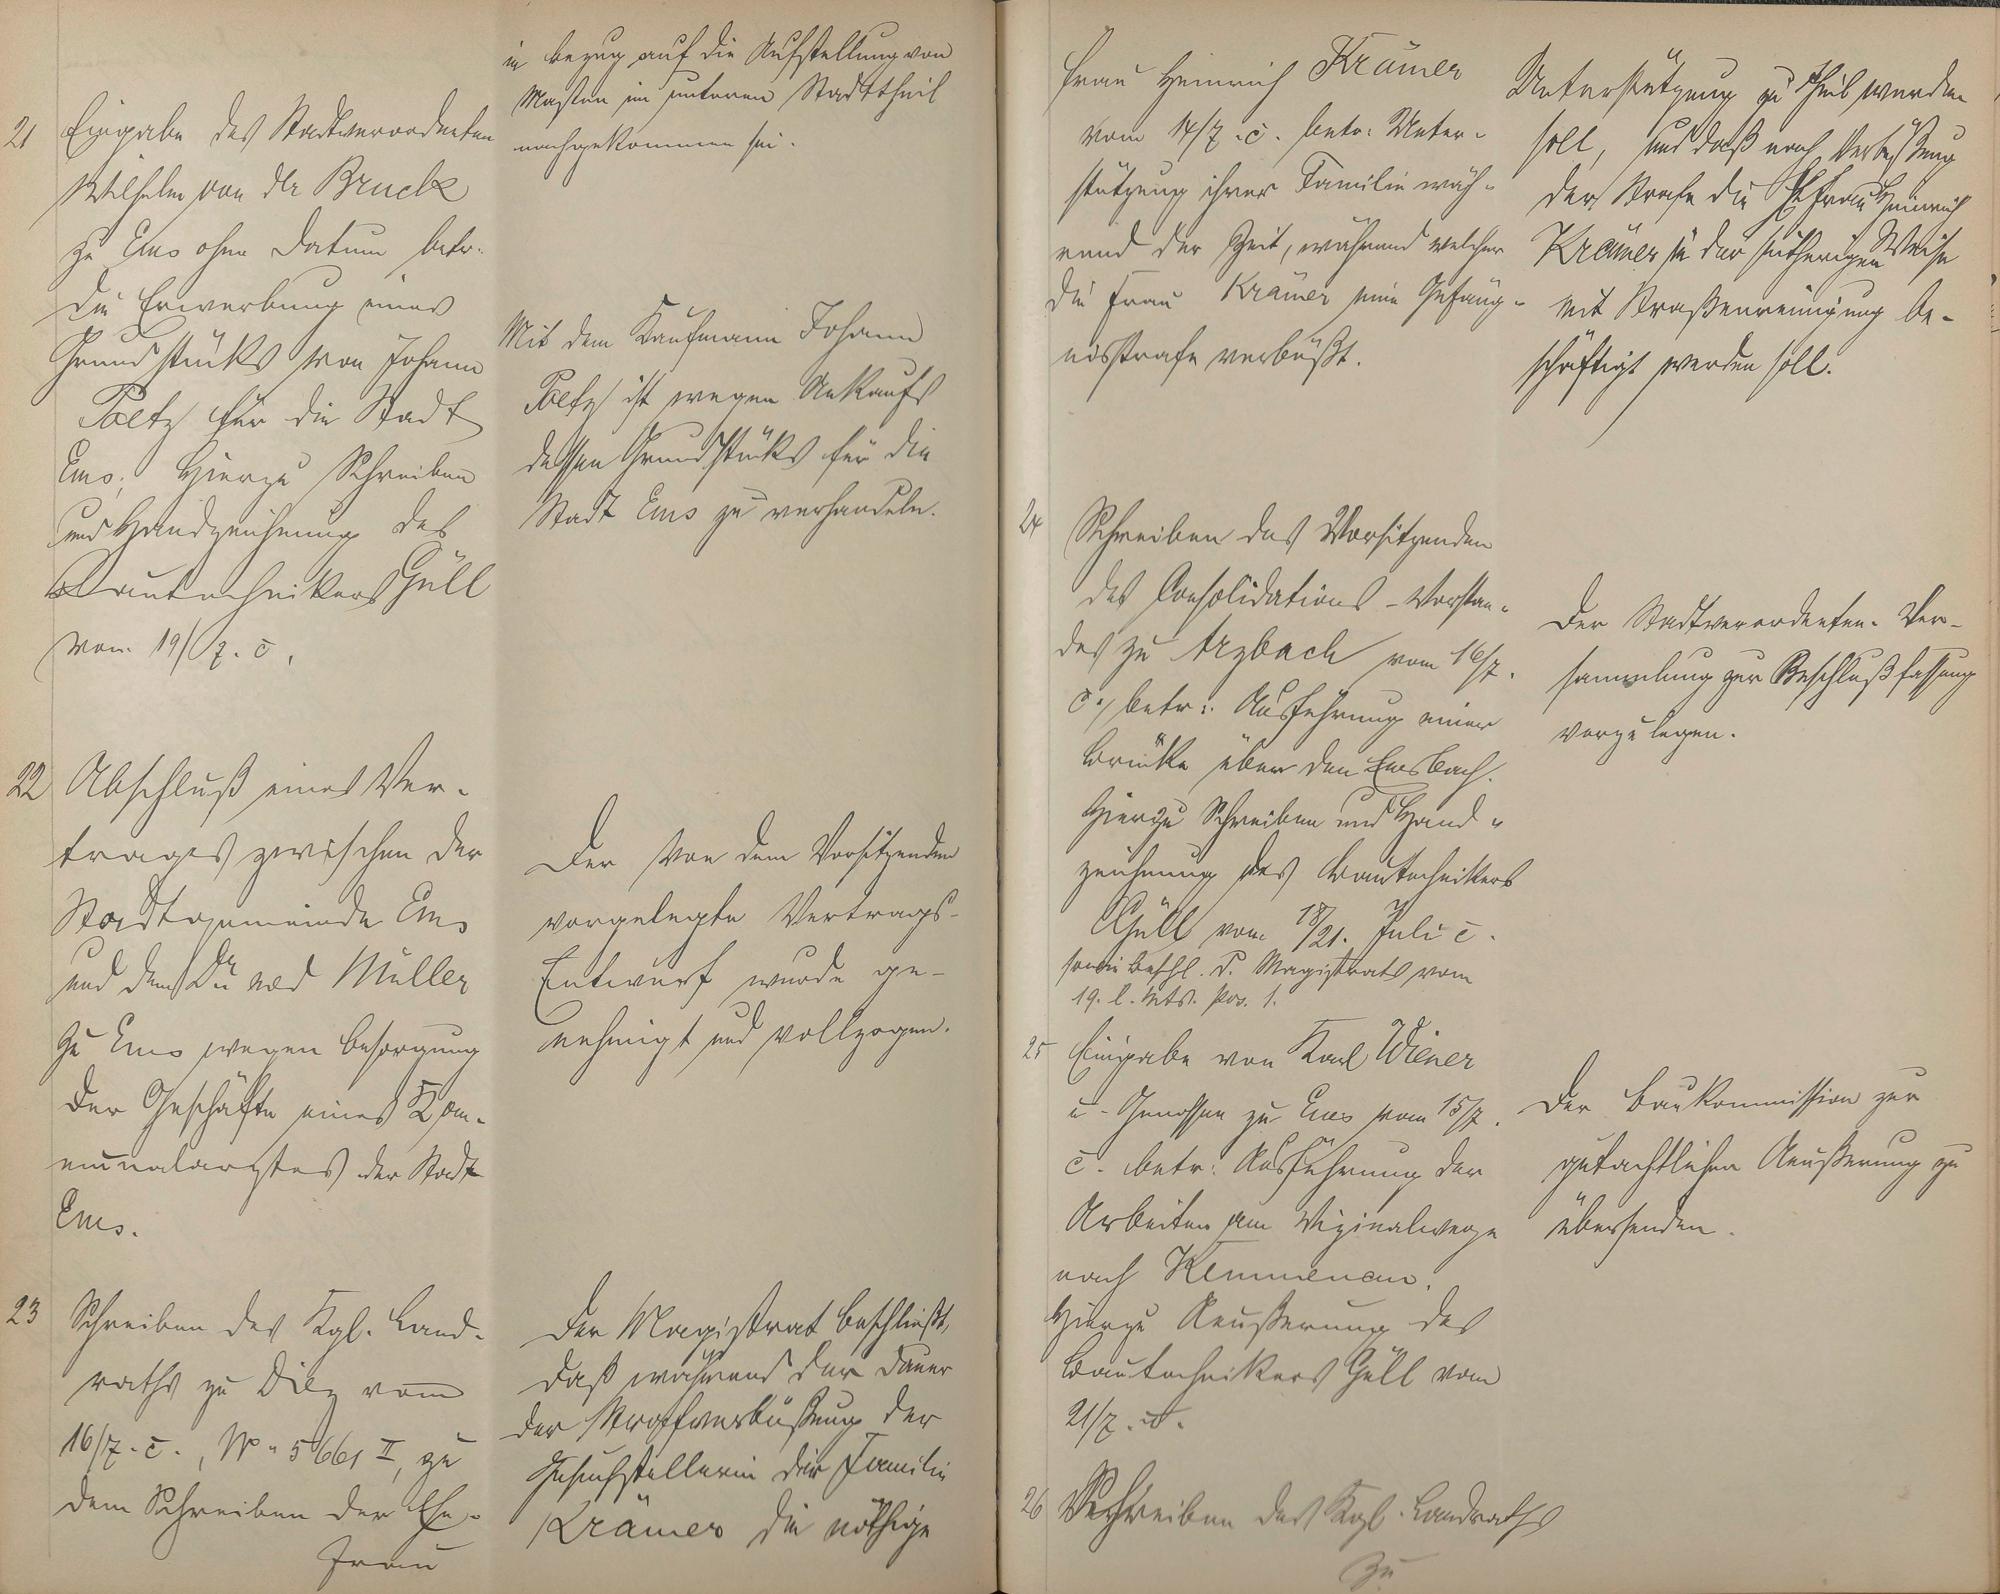 in bezug auf die Aufstellung von
Masten im unteren Stadttheil
nachgekommen sei.
21 Eingabe des Stadtverordneten
Wilhelm von der Bruck
zu Ems ohne Datum betr.
die Erwerbung eines
Grundstücks von Johann
Poltz für die Stadt
Ems; Hierzu Schreiben
und Handzeichnung des
Bautechnikers Güll
vom 19/7. c.
Mit dem Kaufmann Johann
Poltz ist wegen Ankaufs
dessen Grundstücks für die
Stadt Ems zu verhandeln.
22 Abschluß eines Ver-
trages zwischen der
Stadtgemeinde Ems
und dem Dr. med Müller
zu Ems wegen Besorgung
der Geschäfte eines Kom-
munalarztes der Stadt
Ems.
Der von dem Vorsitzenden
vorgelegte Vertrags-
Entwurf wurde ge-
nehmigt und vollzogen.
23 Schreiben des Kgl. Land-
raths zu Diez vom
16/7. c., No. 5661 II, zu
dem Schreiben der Ehe-
frau
Der Magistrat beschließt,
daß während der Dauer
der Strafverbüßung der
Gesuchstellerin der Familie
Krämer die nöthige
Frau Heinrich Krämer
vom 14/7. c. betr. Unter-
stützung ihrer Familie wäh-
rend der Zeit, während welcher
die Frau Krämer eine Gefäng-
nisstrafe verbüßt.
Unterstützung zu Theil werden
soll, und daß nach Verbüßung
der Strafe die Ehefrau Heinrich
Krämer in der seitherigen Weise
mit Straßenreinigung be-
schäftigt werden soll.
24 Schreiben des Vorsitzenden
des Consolidations-Vorstan-
des zu Arzbach vom 16/7.
c., betr. Ausführung einer
Brücke über den Emsbach.
Hierzu Schreiben und Hand-
zeichnung des Bautechnikers
Güll vom 18/21. Juli c.
sowie Beschl. d. Magistrats vom
19. l. Mts. pos. 1.
Der Stadtverordneten-Ver-
sammlung zur Beschlußfassung
vorzulegen.
25 Eingabe von Karl Wiener
u. Genossen zu Ems vom 15/7.
c. betr. Ausführung der
Arbeiten am Vizinalwege
nach Kemmenau.
Hierzu Aeußerung des
Bautechnikers Güll vom
21/7. c.
Der Baukommission zur
gutachtlichen Aeußerung zu
übersenden.
26 Schreiben des Kgl. Landraths
zu